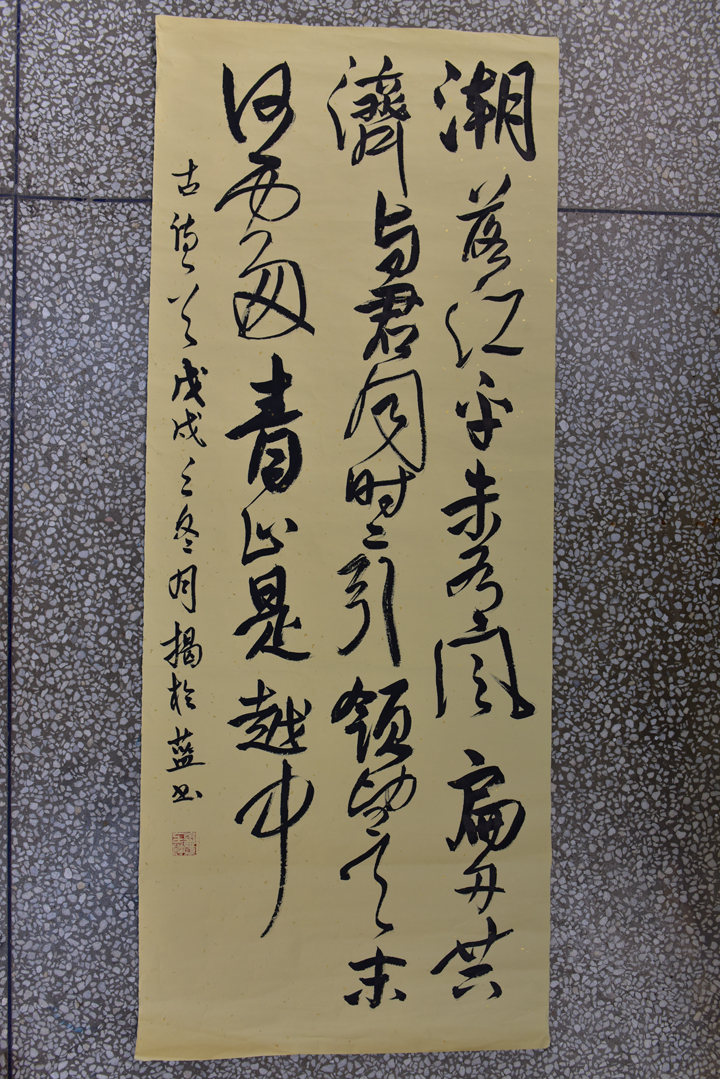 潮落江平未有風扁舟共
濟与君同时々引領望天末
何處青山是越中
古詩一首戊戌之冬月揭於藍书